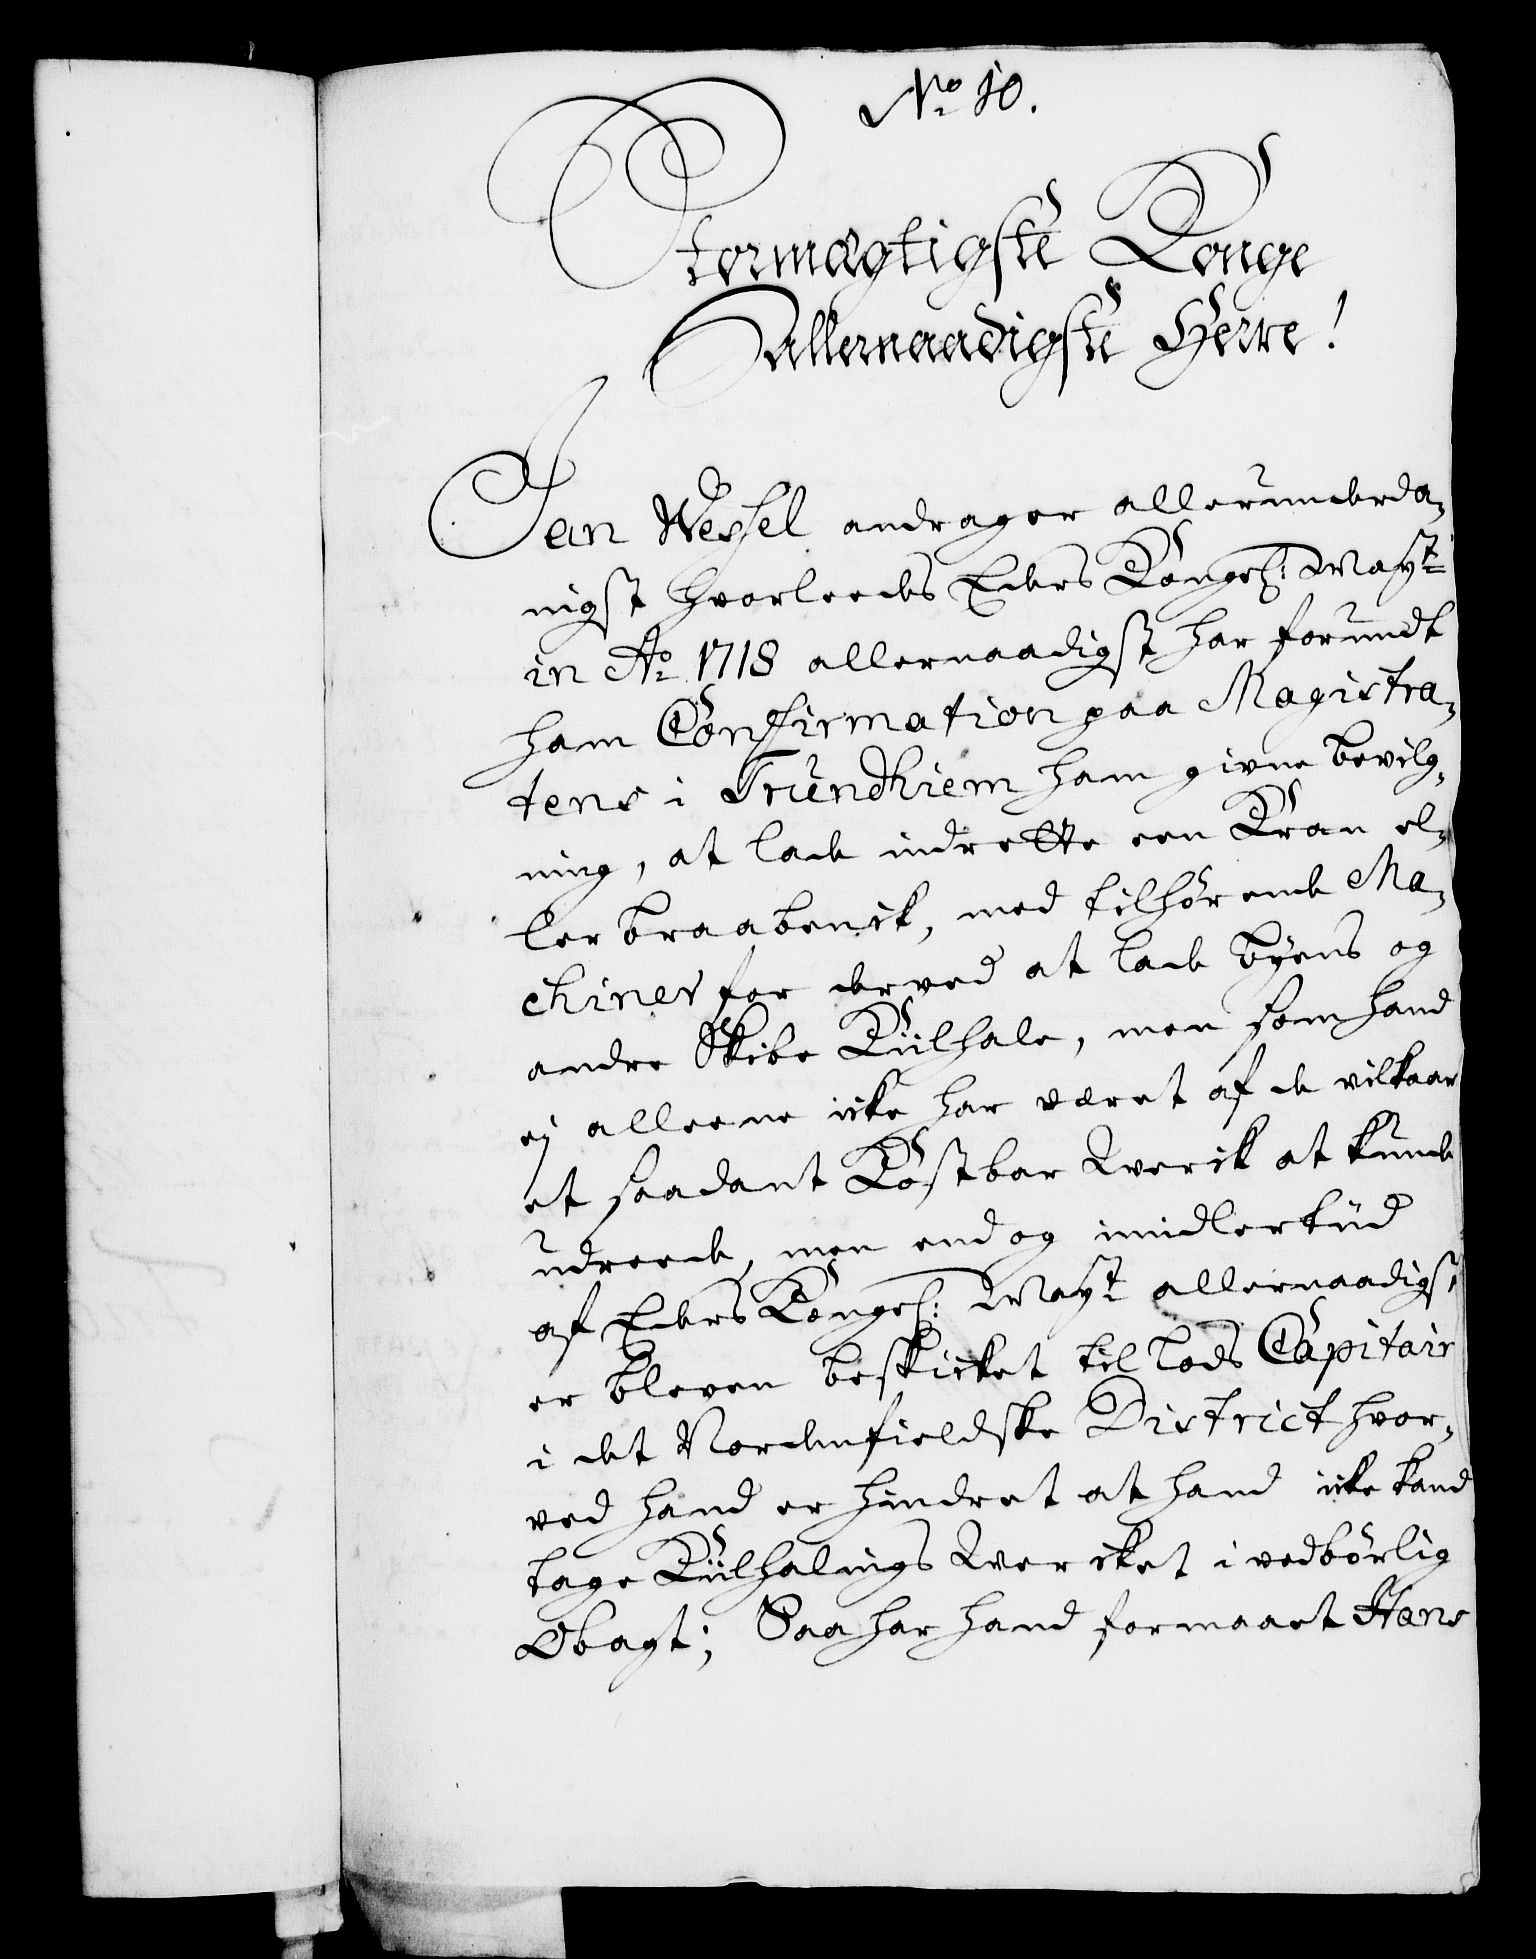 No 10.
Stormægtigste Konge
allernaadigste Herre!
Jan Wessel andrager allerunderda-
nigst hvorleedes Eders Kongel: Mayt
in Ao 1718 allernaadigst har forundt
ham Confirmation paa Magistra-
tens i Trundhiem ham givne bevilg-
ning, at lade indrette een Kran el-
ler Braabenck, med tilhørende Ma-
chiner for derved at lade byens og
andre Skibe Kiilhale, men som hand
ej alleene icke har været af de vilkaar
et saadant Kostbar Werck at kunde
udreede, men end og imidlertiid
af Eders Kongel: Mayt allernaadigst
er bleven beskicket til Lods Capitain
i det Nordenfieldske District hvor-
ved hand er hindret at hand icke kand
tage Kiilhalings Wercket i vedbørlig
Obagt; Saa har hand formaaet Hans